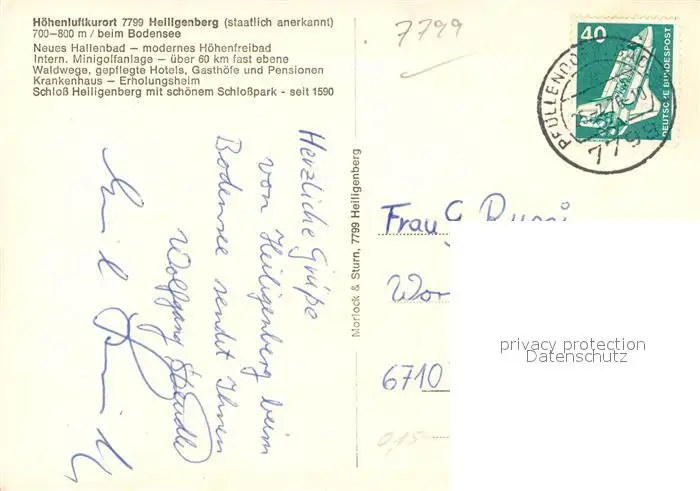 Höhenluftkurort 7799 Heiligenberg (staatlich anerkannt)
700–800 m / beim Bodensee
Neues Hallenbad – modernes Höhenfreibad
Intern. Minigolfanlage – über 60 km fast ebene
Waldwege, gepflegte Hotels, Gasthöfe und Pensionen
Krankenhaus – Erholungsheim
Schloß Heiligenberg mit schönem Schloßpark - seit 1590
7799
40
DEUTSCHE BUNDESPOST
7798
Herzliche Grüße
von Heiligenberg beim
Bodensee sendet Ihnen
Wolfgang
Morlock & Sturn, 7799 Heiligenberg
Frau G
Wor
6710
0,15
privacy protection
Datenschutz